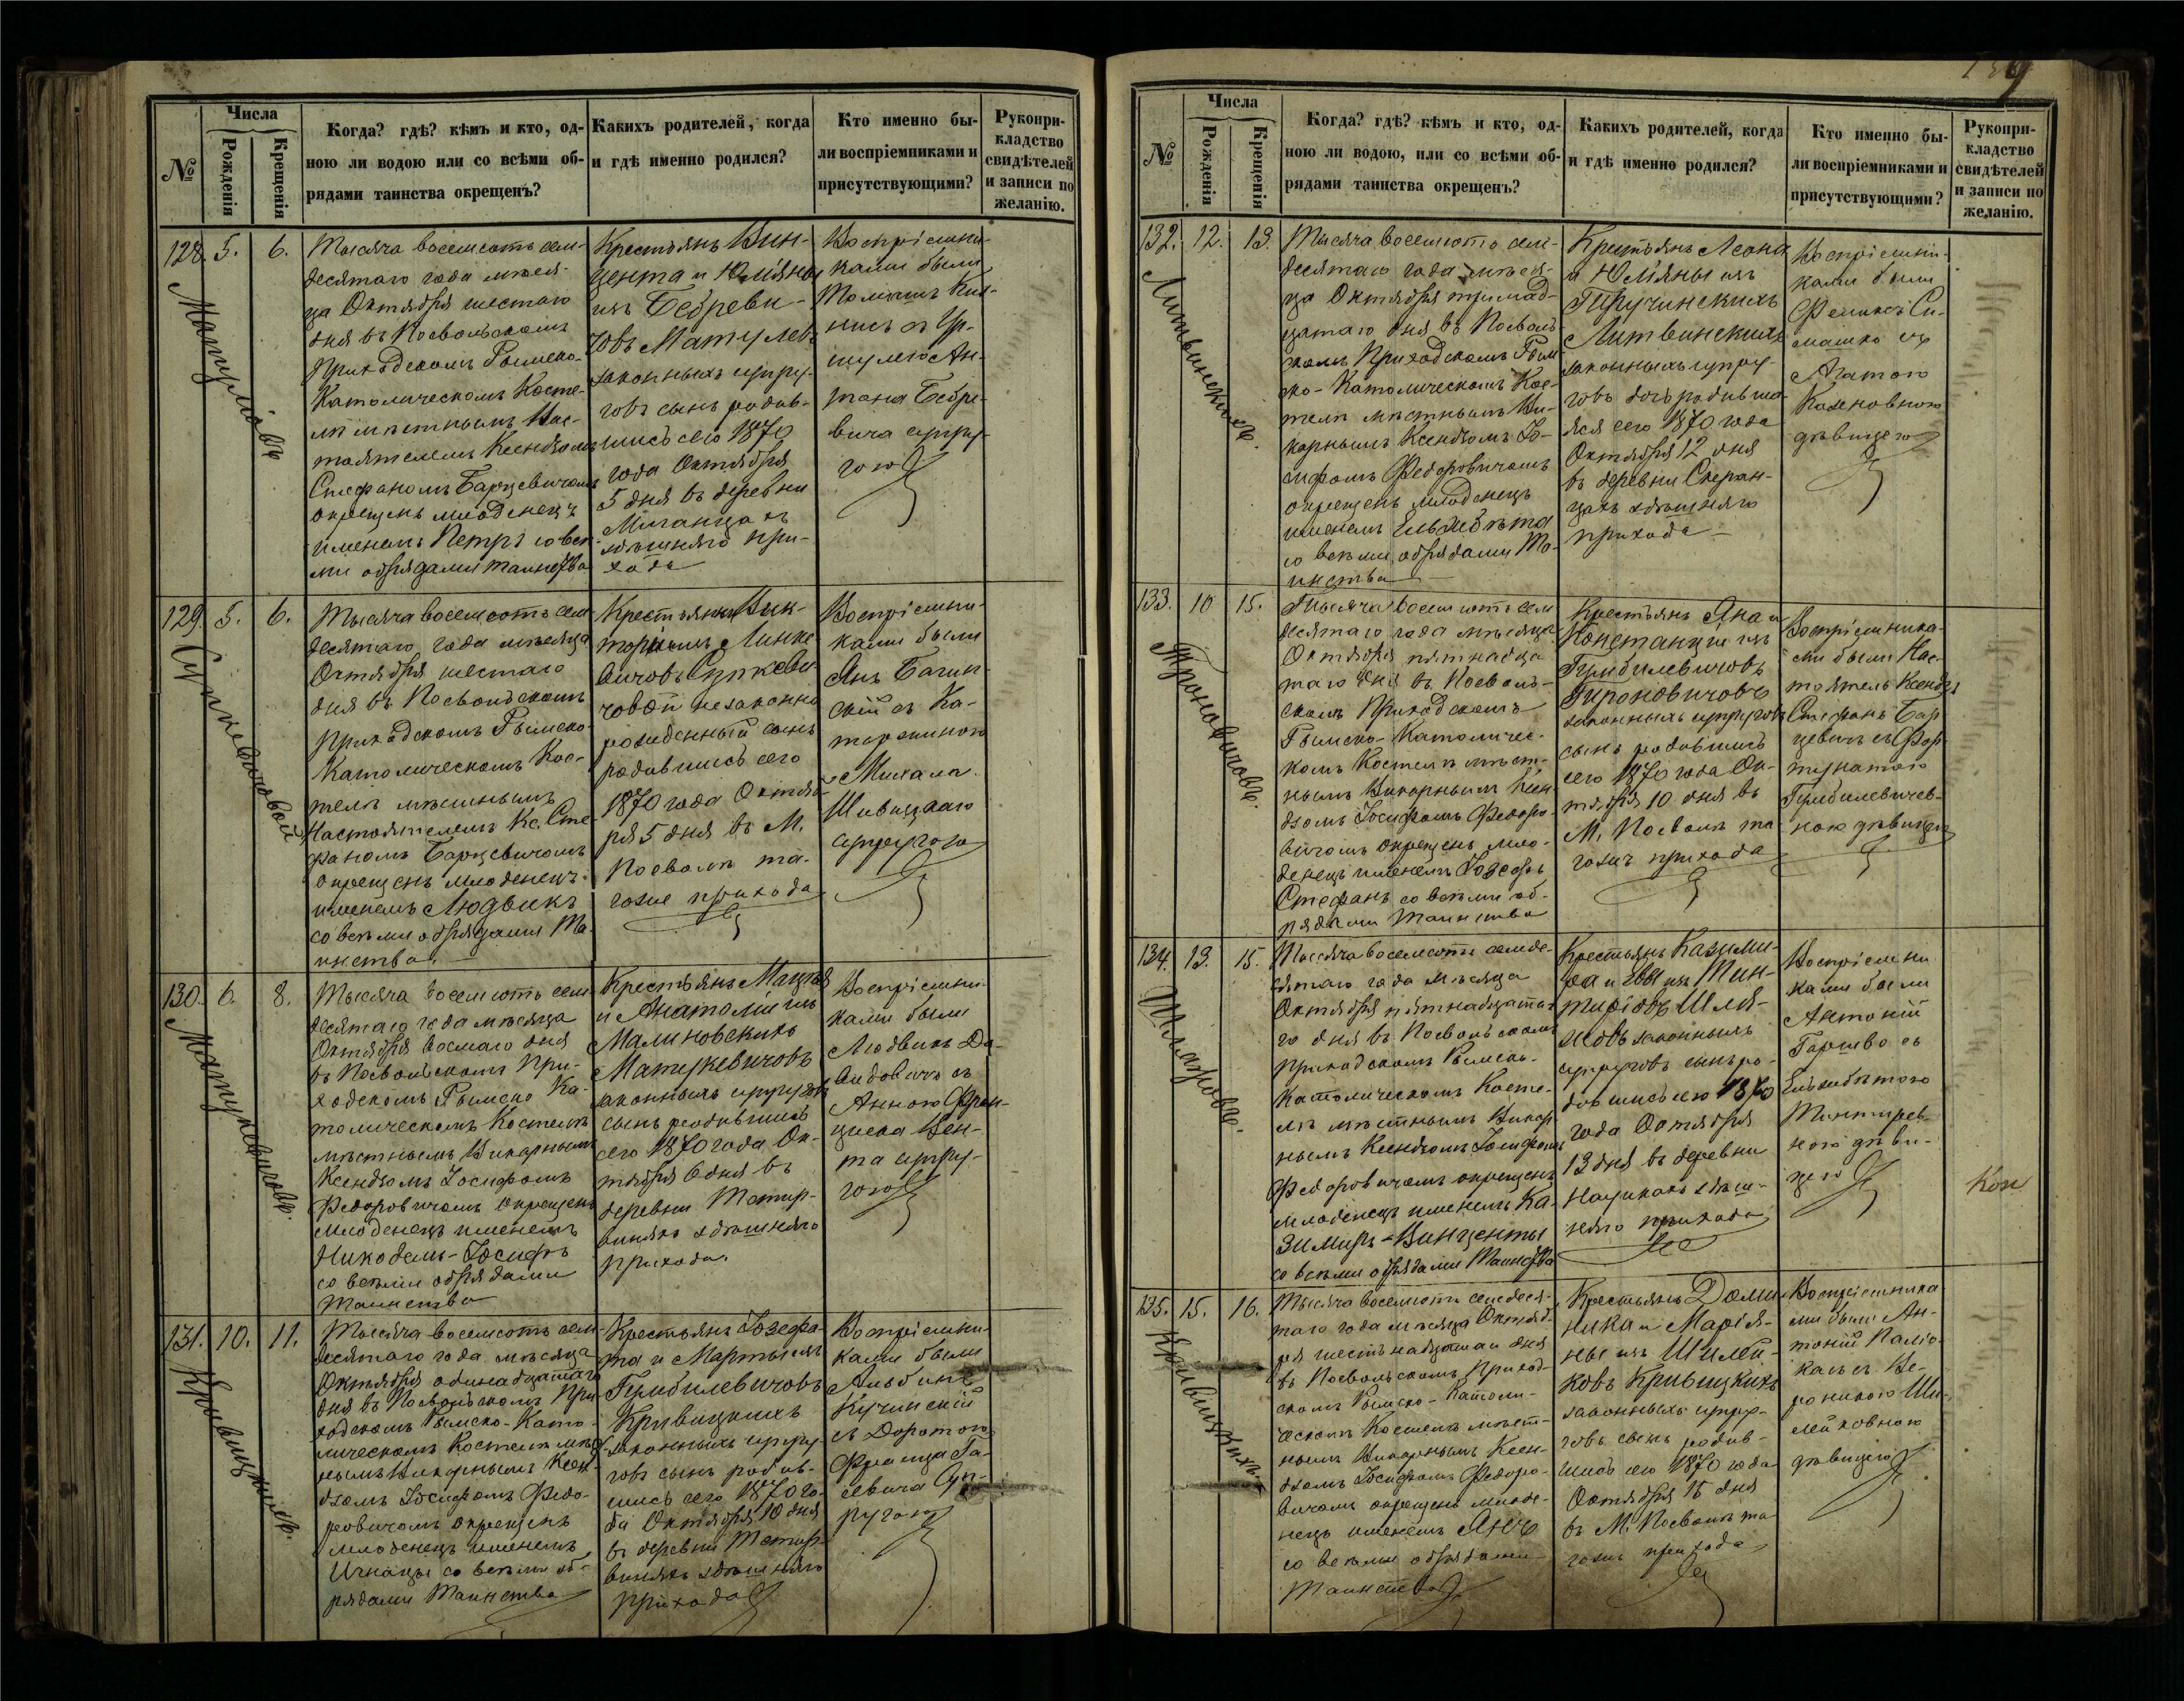 Числа
№
Рожденія
Крещенія
Когда? гдѣ? кѣмъ и кто, од-
ною ли водою или со всѣми об-
рядами таинства окрещенъ?
Какихъ родителей, когда
и гдѣ именно родился?
Кто именно бы-
ли воспріемниками и
присутствующими?
Рукопри-
кладство
свидѣтелей
и записи по
желанію.
128. 5. 6.
Тысяча восемсотъ сем-
десятаго года мѣся-
ца Октября шестаго
дня въ Посвольскомъ
Приходскомъ Римско-
Католическомъ Косте-
лѣ мѣстнымъ Нас-
тоятелемъ Ксендзомъ
Стефаномъ Барцевичомъ
окрещенъ младенецъ
именемъ Петръ со всѣ-
ми обрядами таинства
Крестьянъ Вин-
цента и Юліяны
изъ Бебреви-
човъ Матулевъ
законныхъ супру-
говъ сынъ родив-
шись сего 1870
года Октября
5 дня въ деревни
здѣшняго при-
хода
Воспріемни-
ками были
съ Ур-
шулею Ан-
тона Бебре-
вича супру-
гою
129. 5. 6.
Тысяча восемсотъ сем
десятаго года мѣсяца
Октября шестаго
дня въ Посвольскомъ
Приходскомъ Римско
Католическомъ Кос-
телѣ мѣстнымъ
Настоятелемъ Кс. Сте-
фаномъ Барцевичомъ
окрещенъ младенецъ
именемъ Людвикъ
со всѣми обрядами Та-
инства.
незаконно
рожденный сынъ
родившись сего
1870 года Октяб-
ря 5 дня въ М.
Посволѣ та-
гоже прихода
Воспріемни-
ками были
Янъ Багин-
скій съ Ка-
тержиною
Михала
супругою
130. 6. 8.
Матушкевичовъ.
Тысяча восемсотъ сем
десятаго года мѣсяца
Октября восмаго дня
въ Посвольскомъ При-
ходскомъ Римско Ка-
толическомъ Костелѣ
мѣстнымъ Викарнымъ
Ксендзомъ Іосифомъ
Федоровичомъ окрещенъ
младенецъ именемъ
Никодемъ-Іосифъ
со всѣми обрядами
Таинства
Крестьянъ Мацѣя
и Анатоліи изъ
Малиновскихъ
Матушкевичовъ
законныхъ супруговъ
сынъ родившись
сего 1870 года Ок-
тября 6 дня въ
деревни Тетир-
винахъ здѣшняго
прихода.
Воспріемни-
ками были
Людвикъ Да-
видовичъ съ
Анною Фран-
циска Вен-
та супру-
гою
131. 10. 11.
Кривицкихъ.
Тысяча восемсотъ сем
десятаго года мѣсяца
Октября одинадцатаго
дня въ Посвольскомъ При
ходскомъ Римско-Като-
лическомъ Костелѣ мѣст-
нымъ Викарнымъ Ксен-
дзомъ Іосифомъ Федо-
ровичомъ окрещенъ
младенецъ именемъ
Игнацы со всѣми об-
рядами Таинства
Крестьянъ Іозефа-
та и Марты изъ
Гумбилевичовъ
Кривицкихъ
законныхъ супру-
говъ сынъ родив-
шись сего 1870 го-
да Октября 10 дня
въ деревни Тетир-
винахъ здѣшняго
прихода
Воспріемни-
ками были
Альбинъ
Кучинскій
съ Доротою
Суп-
ругою
Числа
№
Рожденія
Крещенія
Когда? гдѣ? кѣмъ и кто, од-
ною ли водою, или со всѣми об-
рядами таинства окрещенъ?
Какихъ родителей, когда
и гдѣ именно родился?
Кто именно бы-
ли воспріемниками и
присутствующими?
Рукопри-
кладство
свидѣтелей
и записи по
желанію.
132. 12. 13.
Литвинскихъ.
Тысяча восемсотъ сем-
десятаго года мѣся-
ца Октября тринад-
цатаго дня въ Посволь-
скомъ Приходскомъ Рим-
ско-Католическомъ Кос-
телѣ мѣстнымъ Ви-
карнымъ Ксендзомъ Іо-
сифомъ Федоровичомъ
окрещенъ младенецъ
именемъ Ельжбѣта
со всѣми обрядами Та-
инства
Крестьянъ Леона
и Юліяны изъ
Литвинскихъ
законныхъ супру-
говъ дочь родивша-
яся сего 1870 года
Октября 12 дня
въ деревни
здѣшняго
прихода
Воспріемни-
ками были
Феликсъ Си-
машко съ
Агатою
дѣвицею
133. 10 15.
Тысяча восемсотъ сем
десятаго года мѣсяца
Октября пятнадца
таго дня въ Посволь-
скомъ Приходскомъ
Римско-Католичес-
комъ Костелѣ мѣст-
нымъ Викарнымъ Ксен
дзомъ Іосифомъ Федоро-
вичомъ окрещенъ мла-
денецъ именемъ Іозефъ
Стефанъ со всѣми об-
рядами Таинства
Крестьянъ Яна и
Констанціи изъ
Гумбилевичовъ
законныхъ супруговъ
сынъ родившись
сего 1870 года Ок-
тября 10 дня въ
М. Посволѣ та
гожъ прихода
Воспріемника-
ми были Нас-
тоятель Ксендзъ
Стефанъ Бар
цевичъ съ Фор-
тунатою
Гумбилевичев-
ною дѣвицею
134. 13. 15.
Тысяча восемсотъ семде-
сятаго года мѣсяца
Октября пятнадцата-
го дня въ Посвольскомъ
Приходскомъ Римско-
Католическомъ Косте-
лѣ мѣстнымъ Викар-
нымъ Ксендзомъ Іосифомъ
Федоровичомъ окрещенъ
младенецъ именемъ Ка-
зимиръ-Винценты
со всѣми обрядами Таинства
Крестьянъ Казими-
ра и Евы изъ
законныхъ
супруговъ сынъ ро-
дившись сего 1870
года Октября
13 дня въ деревни
здѣш-
няго прихода
Воспріемни
ками были
Антоній
съ
Ельжбѣтою
дѣви-
цею
Коп
135. 15. 16.
Кривицкихъ.
Тысяча восемсотъ семдеся-
таго года мѣсяца Октяб-
ря шестьнадцатаго дня
въ Посвольскомъ Приход-
скомъ Римско-Католи-
ческомъ Костелѣ мѣст-
нымъ Викарнымъ Ксен-
дзомъ Іосифомъ Федоро-
вичомъ окрещенъ младе-
нецъ именемъ Янъ
со всѣми обрядами
Таинства
Крестьянъ Доми-
ника и Марія-
нны изъ Шилей-
ковъ Кривицкихъ
законныхъ супру-
говъ сынъ родив-
шись сего 1870 года
Октября 15 дня
въ М. Посволѣ та
гожъ прихода
Воспріемника
ми были Ан-
тоній Палю-
касъ съ Ве-
роникою Ши-
лейковною
дѣвицею